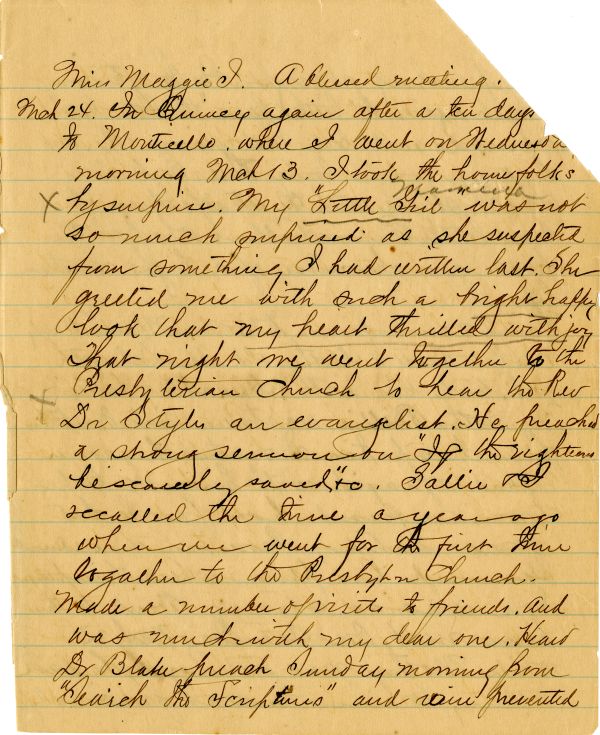 Miss Maggie J. A blessed meeting.
Mch 24. In Quincy again after a ten days
to Monticello. where I went on Wednesda
morning Mch 13. I took the home folk's
x by surprise. My "Little Girl" was not
so much surprised as she suspected
from something I had written last. She
greeted me with such a bright happy
look that my heart thrilled with joy
That night we went together to the
x Presbyterian Church to hear the Rev
Dr Styles an evangelist. He preached
a strong sermon on "If the righteous
be scarcely saved" &c. Sallie & I
recalled the time a year ago
when we went for the first time
together to the Presbytn Church.
Made a number of visits to friends. And
was much with my dear one. Heard
Dr Blake preach Sunday morning from
"Search the Scriptures" and were prevented